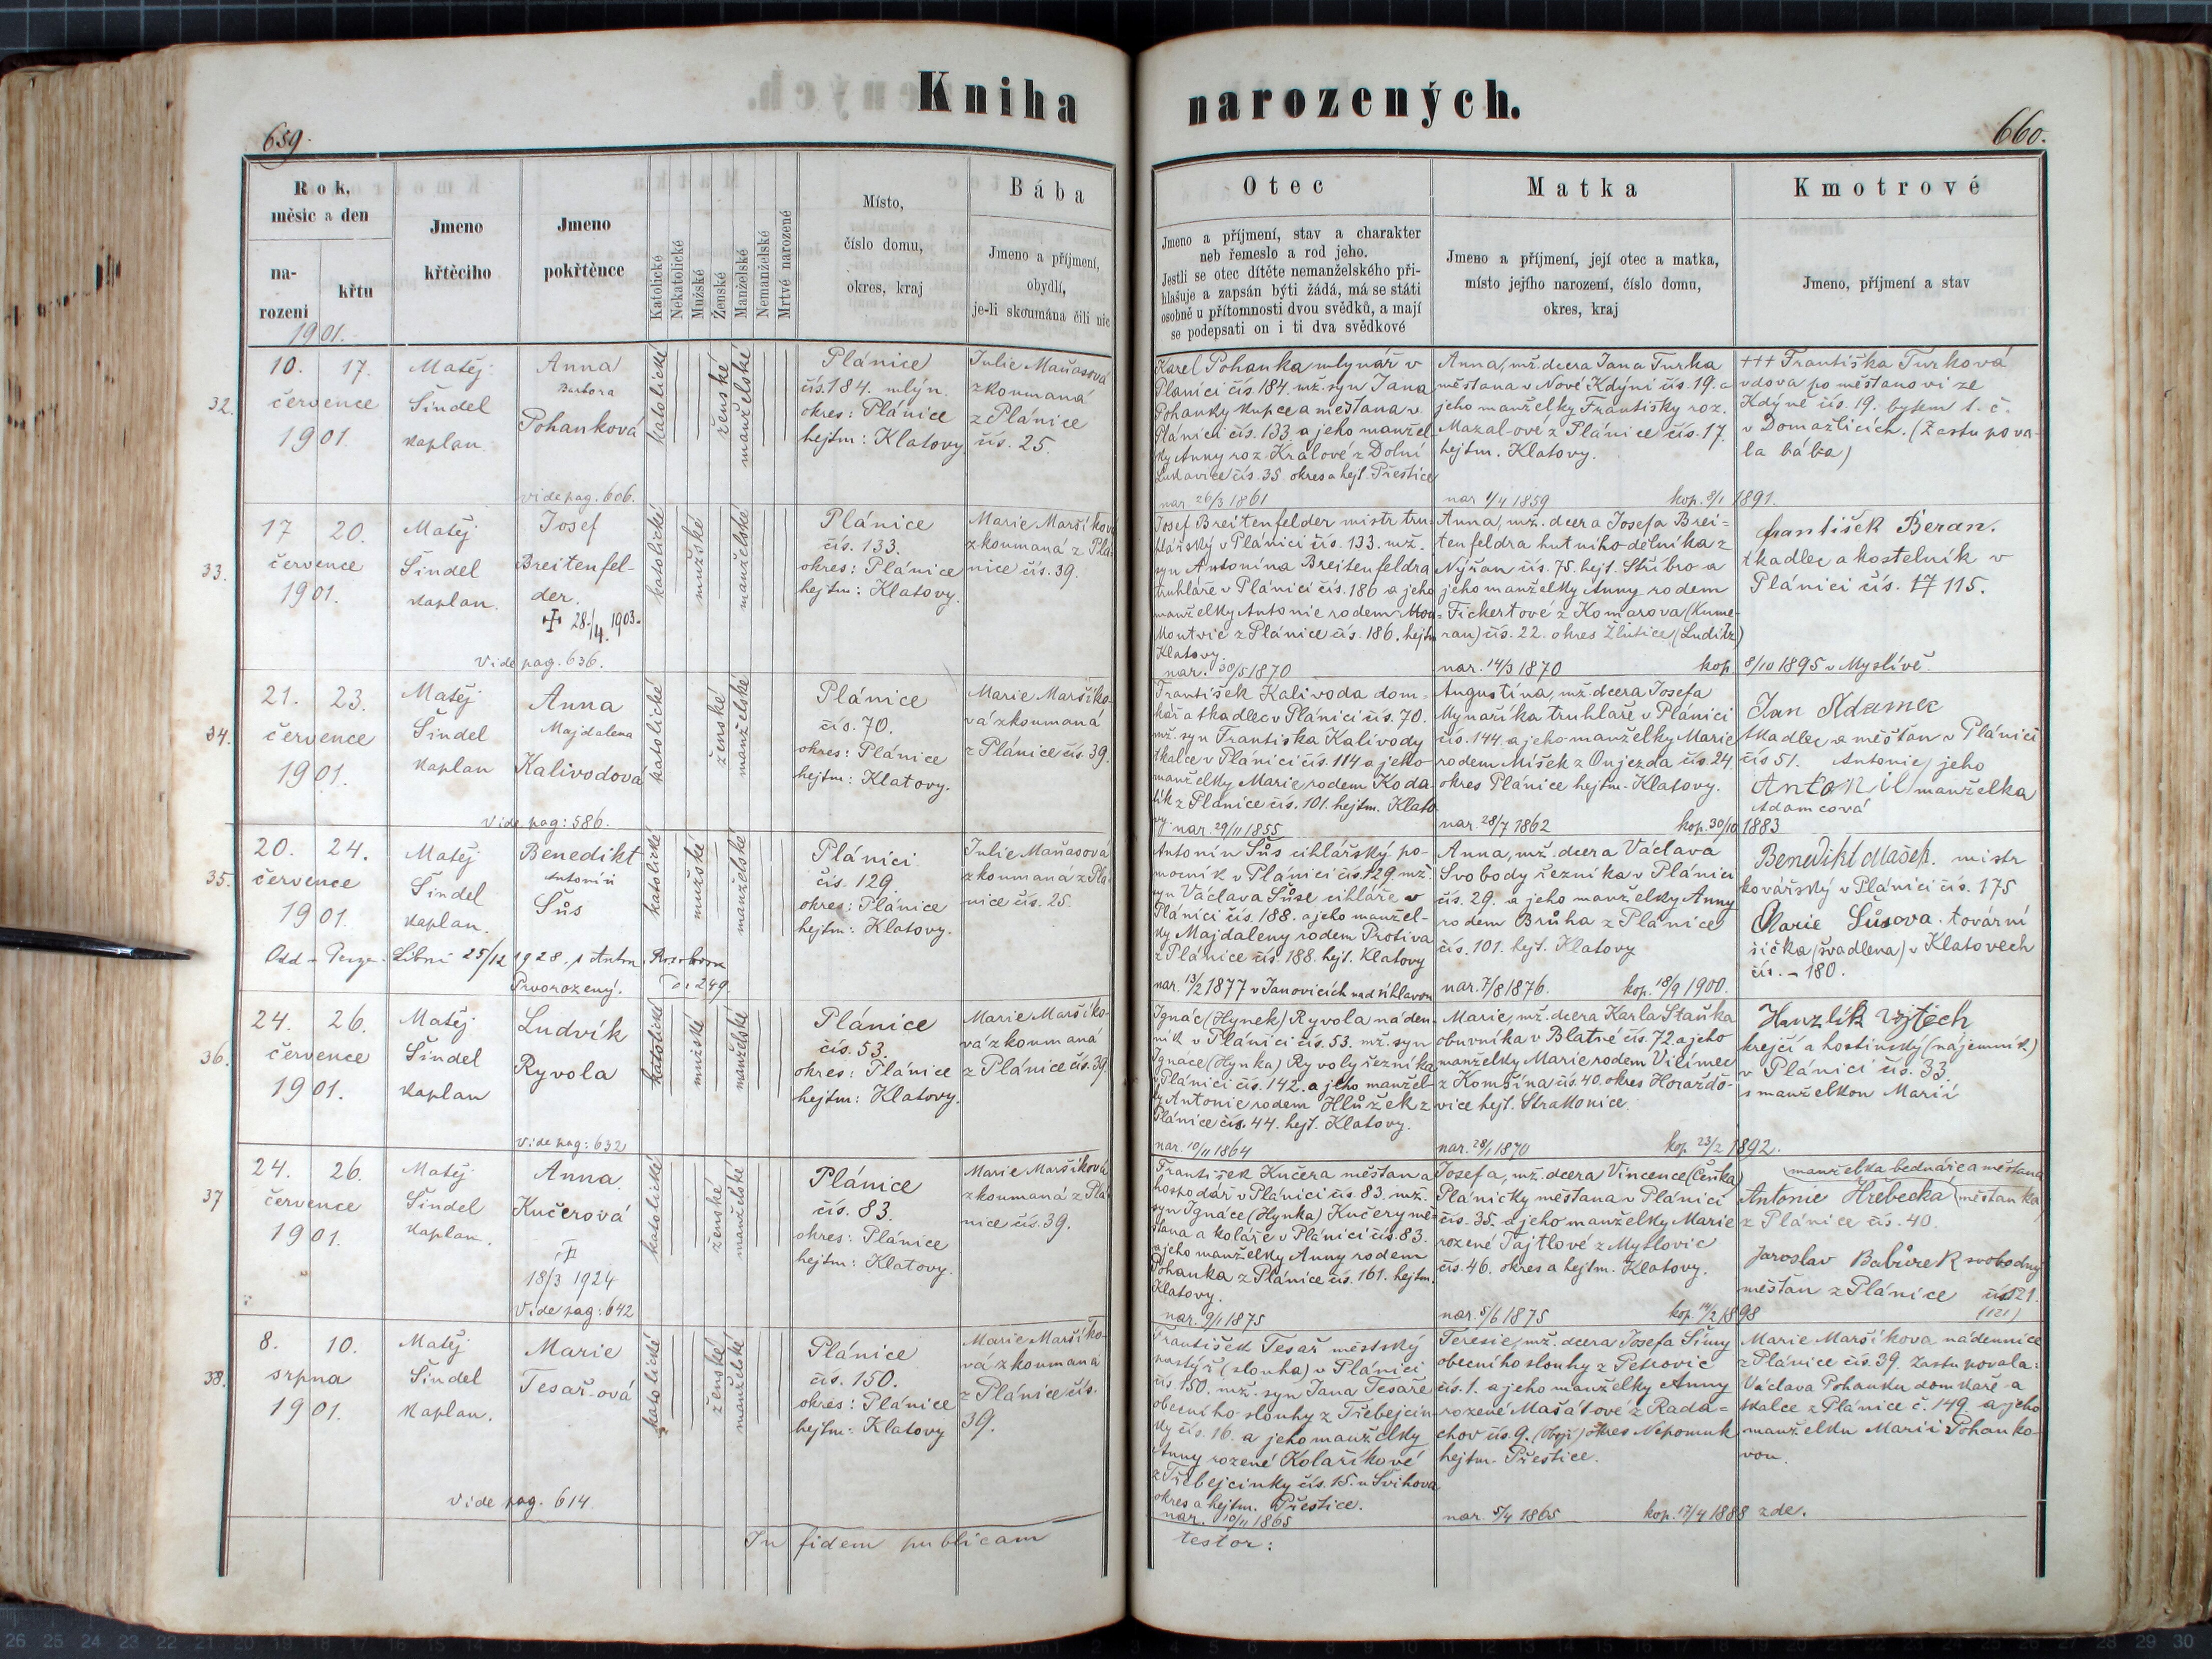 Kniha narozených.
659.
660.
Rok, měsíc a den
na-
rození
křtu
1901.
Jmeno
křtěcího
Jmeno
pokřtěnce
Katolické
Nekatolické
Mužské
Ženské
Manželské
Nemanželské
Mrtvé narozené
Místo,
číslo domu,
okres, kraj
Bába
Jmeno a příjmení,
obydlí,
je-li skoumána čili nic
Otec
Jmeno a příjmení, stav a charakter
neb řemeslo a rod jeho.
Jestli se otec dítěte nemanželského při-
hlašuje a zapsán býti žádá, má se státi
osobně u přítomnosti dvou svědků, a mají
se podepsati on i ti dva svědkové
Matka
Jmeno a příjmení, její otec a matka,
místo jejího narození, číslo domu,
okres, kraj
Kmotrové
Jmeno, příjmení a stav
32.
10. 17.
července
1901.
Matěj
Šindel
kaplan
Anna
Barbora
Pohanková
vide pag. 606.
katolické
ženské
manželské
Plánice
čís. 184. mlýn.
okres: Plánice
hejtm: Klatovy
Julie Maňasová
zkoumaná
z Plánice
čís. 25.
Karel Pohanka mlynář v
Plánici čís. 184. mž. syn Jana
Pohanky kupce a měšťana v
Plánici čís. 133 a jeho manžel-
ky Anny roz. Králové z Dolní
Lukavice čís. 35 okres a hejt. Přeštice
nar. 26/3 1861
Anna, mž. dcera Jana Turka
měšťana v Nové Kdýni čís. 19. a
jeho manželky Františky roz.
Mazal-ové z Plánice čís. 17.
hejtm. Klatovy.
nar. 1/4 1859 kop. 8/1 1891.
+++ Františka Turková
vdova po měšťanovi ze
Kdýně čís. 19. bytem t. č.
v Domažlicích. (Zastupova-
la bába)
33.
17 20.
července
1901.
Matěj
Šindel
kaplan.
Josef
Breitenfel-
der.
28./4. 1903.
Vide pag. 636.
katolické
mužské
manželské
Plánice
čís. 133.
okres: Plánice
hejtm: Klatovy.
Marie Maršíková
zkoumaná z Plá-
nice čís. 39.
Josef Breitenfelder mistr tru-
hlářský v Plánici čís. 133. mž.
syn Antonína Breitenfeldra
truhláře v Plánici čís. 186 a jeho
manželky Antonie rodem Mou-
Moutvic z Plánice čís. 186. hejtm
Klatovy.
nar. 30/5 1870
Anna, mž. dcera Josefa Brei-
tenfeldra hutního dělníka z
Nýřan čís. 75. hejt. Stříbro a
jeho manželky Anny rodem
Fickertové z Komárova (Kume-
ran) čís. 22. okres Žlutice (Luditz)
nar. 14/3 1870 kop. 8/10 1895 v Myslívě.
František Beran.
tkadlec a kostelník v
Plánici čís. 17 115.
34.
21. 23.
července
1901.
Matěj
Šindel
kaplan
Anna
Majdalena
Kalivodová
Vide pag: 586.
katolické
ženské
manželské
Plánice
čís. 70.
okres: Plánice
hejtm: Klatovy.
Marie Maršíko-
vá zkoumaná
z Plánice čís. 39.
František Kalivoda dom-
kář a tkadlec v Plánici čís. 70.
mž. syn Františka Kalivody
tkalce v Plánici čís. 114 a jeho
manželky Marie rodem Koda-
tik z Plánice čís. 101. hejtm. Klato
vy. nar. 29/11 1855
Augustina, mž. dcera Josefa
Mynaříka truhláře v Plánici
čís. 144. a jeho manželky Marie
rodem Míšek z Oujezda čís. 24.
okres Plánice hejtm. Klatovy.
nar. 28/7 1862 kop. 30/10 1883
Jan Adamec
tkadlec a měšťan v Plánici
čís 51. Antonie jeho
Antonie manželka
Adamcová
35.
20. 24.
července
1901.
Matěj
Šindel
kaplan.
Benedikt
Antonín
Šůs
katolické
mužské
manželské
Plánici
čís. 129
okres: Plánice
hejtm: Klatovy.
Julie Maňasová
zkoumaná z Plá-
nice čís. 25.
Libni 25/12 1928
Prvorozený.
249
Antonín Šůs cihlářský po-
mocník v Plánici čís. 129. mž.
syn Václava Šůse cihláře v
Plánici čís. 188. a jeho manžel-
ky Majdaleny rodem Protiva
z Plánice čís. 188. hejt. Klatovy
nar. 13/2 1877 v Janovicích nad Úhlavou
Anna, mž. dcera Václava
Svobody řezníka v Plánici
čís. 29. a jeho manželky Anny
rodem Brůha z Plánice
čís. 101. hejt. Klatovy
nar. 7/8 1876. kop. 18/9 1900.
Benedikt Mašek. mistr
kovářský v Plánici čís. 175
Marie Šůsova. tovární
šička (švadlena) v Klatovech
čís. – 180.
36.
24. 26.
července
1901.
Matěj
Šindel
kaplan
Ludvík
Ryvola
Vide pag: 632
katolické
mužské
manželské
Plánice
čís. 53.
okres: Plánice
hejtm: Klatovy.
Marie Maršíko-
vá zkoumaná
z Plánice čís. 39
Ignác (Hynek) Ryvola náden-
ník v Plánici čís. 53. mž. syn
Ignáce (Hynka) Ryvoly řezníka
v Plánici čís. 142. a jeho manžel-
ky Antonie rodem Hlůžek z
Plánice čís. 44. hejt. Klatovy.
nar. 10/11 1864
Marie, mž. dcera Karla Staňka
obuvníka v Blatné čís. 72. a jeho
manželky Marie rodem Vilímec
z Komšína čís. 40. okres Horažďo-
vice hejt. Strakonice.
nar. 28/1 1870 kop. 23/2 1892.
Hanzlík Vojtěch
krejčí a hostinský (nájemník)
v Plánici čís. 33
s manželkou Marií
37
24. 26.
července
1901.
Matěj
Šindel
kaplan.
Anna
Kučerová
18/3 1924
Vide pag: 642
katolické
ženské
manželské
Plánice
čís. 83.
okres: Plánice
hejtm: Klatovy.
Marie Maršíková
zkoumaná z Plá-
nice čís. 39.
František Kučera měšťan a
hospodář v Plánici čís. 83. mž.
syn Ignáce (Hynka) Kučery mě-
šťana a koláře v Plánici čís. 83.
a jeho manželky Anny rodem
Pohanka z Plánice čís. 161. hejtm.
Klatovy.
nar. 9/1 1875
Josefa, mž. dcera Vincence (Čeňka)
Pláničky měšťana v Plánici
čís. 35. a jeho manželky Marie
rozené Tajtlové z Myslovic
čís. 46. okres a hejtm. Klatovy.
nar. 5/6 1875 kop. 14/2 1898
manželka bednáře a měšťana
Antonie Hřebecká (měšťanka)
z Plánice čís. 40.
Jaroslav Babůrek svobodný
měšťan z Plánice čís 121.
(121)
38.
8. 10.
srpna
1901.
Matěj
Šindel
kaplan.
Marie
Tesař-ová
Vide pag. 614.
katolické
ženské
manželské
Plánice
čís. 150.
okres: Plánice
hejtm: Klatovy
Marie Maršíko-
vá zkoumaná
z Plánice čís.
39.
František Tesař městský
pastýř (slouha) v Plánici
čís 150. mž. syn Jana Tesaře
obecního slouhy z Třebejcin-
ky čís. 16. a jeho manželky
Anny rozené Kolaříkové
z Třebejcinky čís. 15. u Švihova
okres a hejtm. Přeštice.
nar. 10/11 1865
Teresie, mž. dcera Josefa Šimy
obecního slouhy z Petrovic
čís. 1. a jeho manželky Anny
rozené Mašátové z Rada-
chov čís. 9. okres Nepomuk
hejtm. Přeštice.
nar. 5/4 1865 kop. 17/4 1888 zde.
Marie Maršíkova nádennice
z Plánice čís. 39. zastupovala:
Václava Pohanku domkáře a
tkalce z Plánice č. 149. a jeho
manželku Marii Pohanko-
vou.
In fidem publicam
testor: